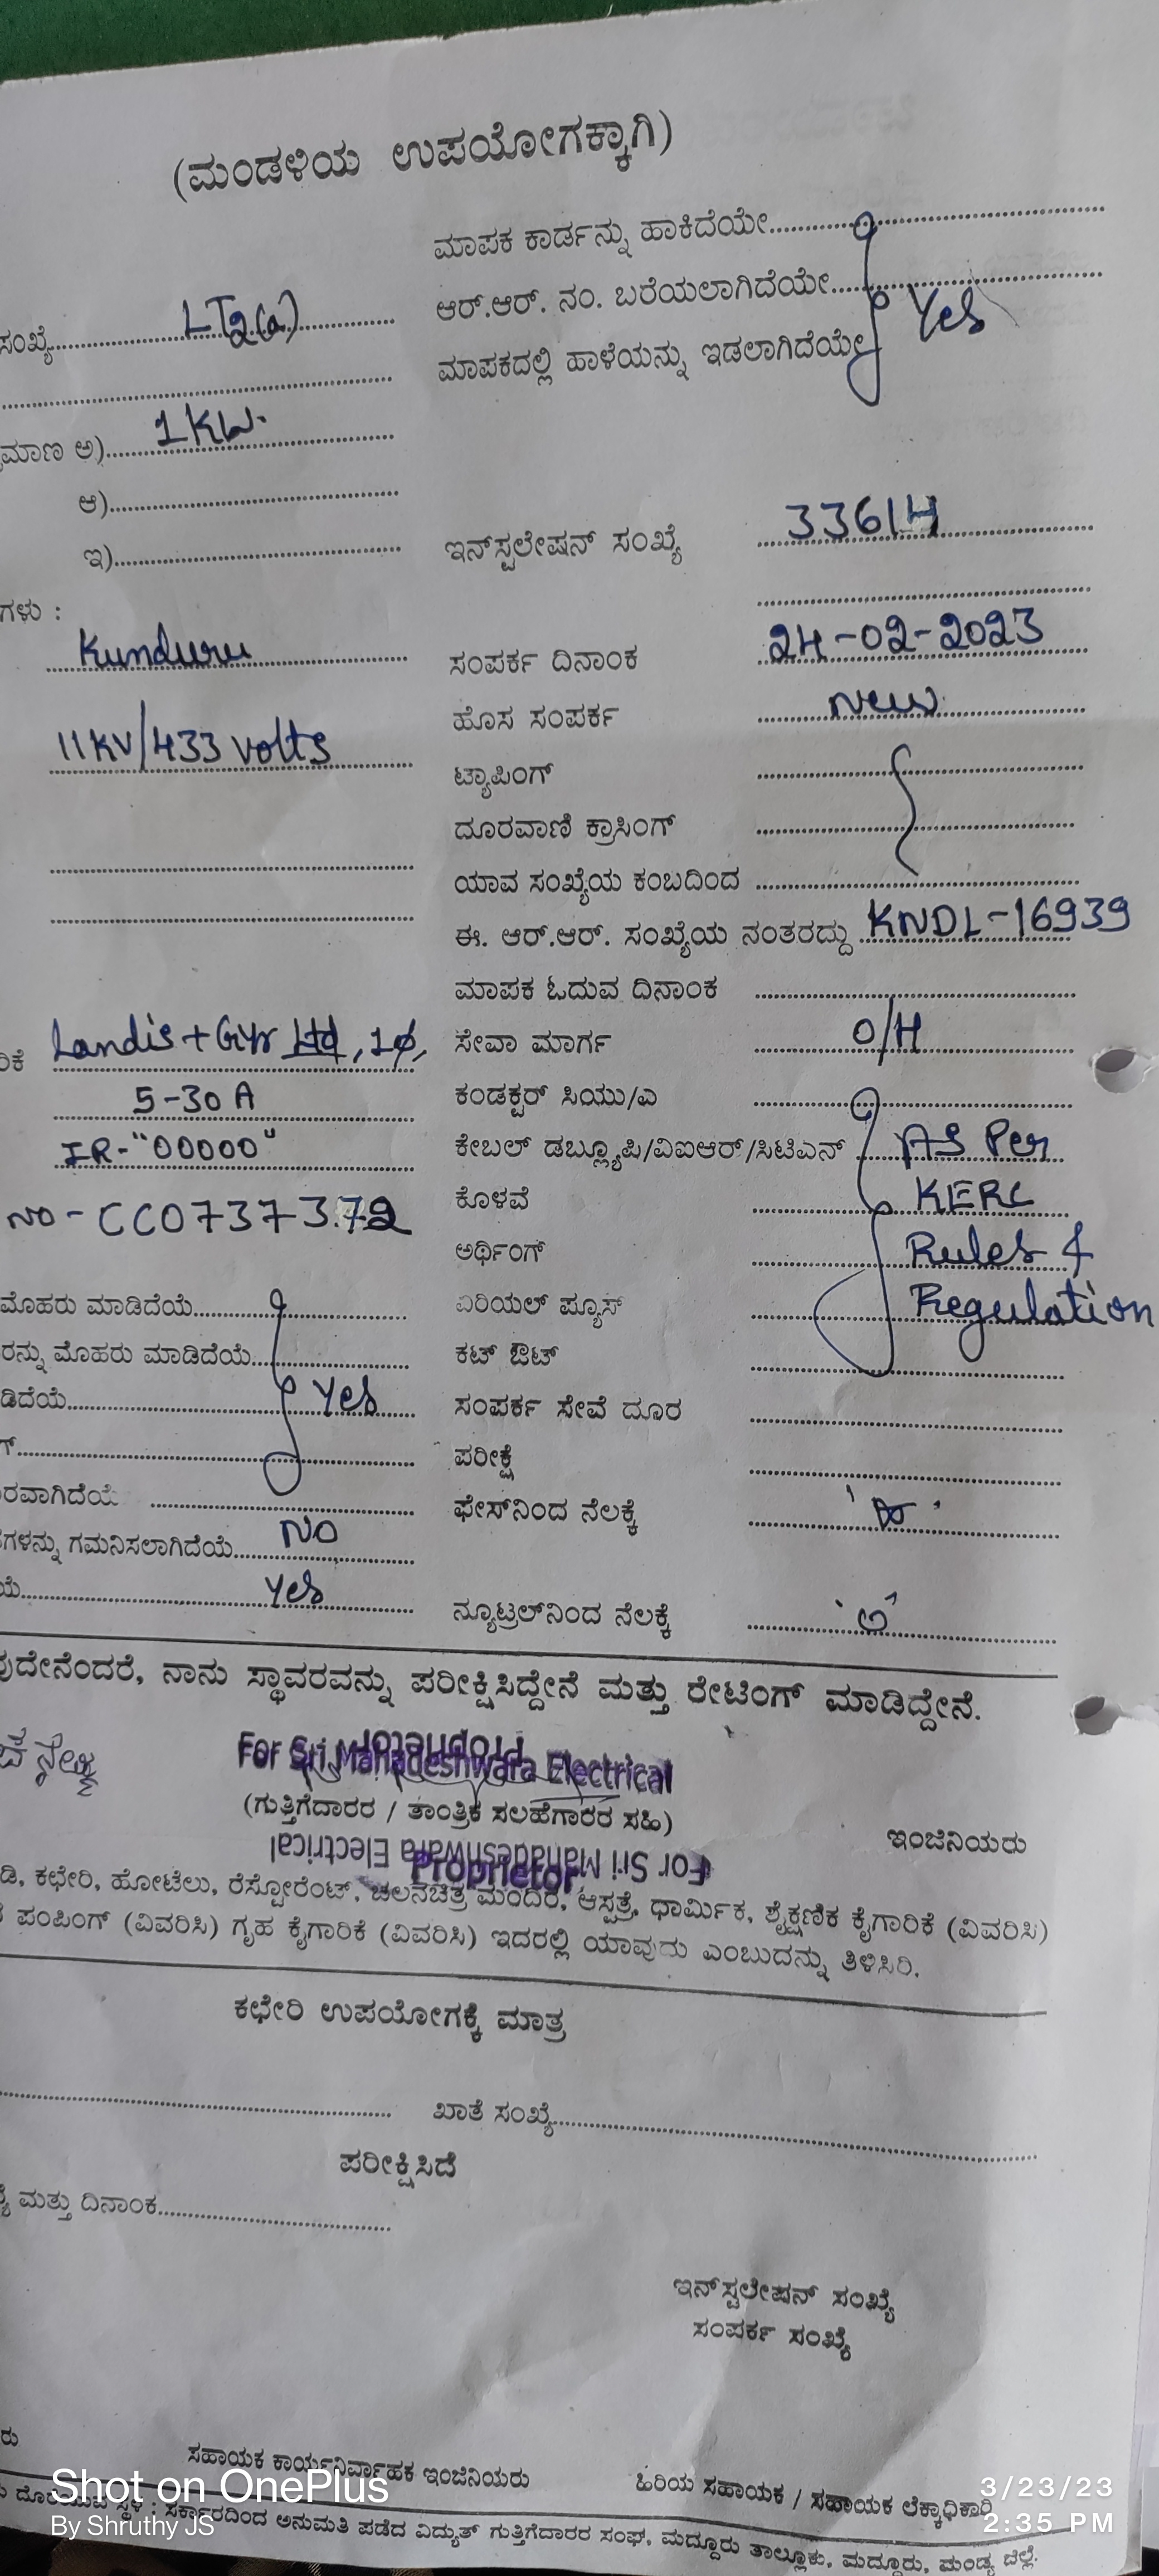 (ಮಂಡಳಿಯ ಉಪಯೋಗಕ್ಕಾಗಿ)
ಮಾಪಕ ಕಾರ್ಡನ್ನು ಹಾಕಿದೆಯೇ
ಆರ್.ಆರ್. ನಂ. ಬರೆಯಲಾಗಿದೆಯೇ Yes
ಮಾಪಕದಲ್ಲಿ ಹಾಳೆಯನ್ನು ಇಡಲಾಗಿದೆಯೇ
ಸಂಖ್ಯೆ LT2(a)
ಮಾಣ ಅ) 1KW.
ಆ)
ಇ)
ಇನ್‌ಸ್ಟಲೇಷನ್ ಸಂಖ್ಯೆ 33614
ಗಳು :
Kunduru
ಸಂಪರ್ಕ ದಿನಾಂಕ 24-02-2023
ಹೊಸ ಸಂಪರ್ಕ New
11KV/433 volts
ಟ್ಯಾಪಿಂಗ್
ದೂರವಾಣಿ ಕ್ರಾಸಿಂಗ್
ಯಾವ ಸಂಖ್ಯೆಯ ಕಂಬದಿಂದ
ಈ. ಆರ್.ಆರ್. ಸಂಖ್ಯೆಯ ನಂತರದ್ದು KNDL-16939
ಮಾಪಕ ಓದುವ ದಿನಾಂಕ
ರಿಕೆ Landis+Gyr Ltd, 1ϕ,
ಸೇವಾ ಮಾರ್ಗ O/H
5-30 A
ಕಂಡಕ್ಟರ್ ಸಿಯು/ಎ
IR-"00000"
ಕೇಬಲ್ ಡಬ್ಲ್ಯೂಪಿ/ವಿಐಆರ್/ಸಿಟಿಎನ್ AS Per
NO-CC0737372
ಕೊಳವೆ KERC
ಅರ್ಥಿಂಗ್ Rules &
ಮೊಹರು ಮಾಡಿದೆಯೆ
ಏರಿಯಲ್ ಪ್ಯೂಸ್ Regulation
ರನ್ನು ಮೊಹರು ಮಾಡಿದೆಯೆ
ಕಟ್ ಔಟ್
ಡಿದೆಯೆ Yes
ಸಂಪರ್ಕ ಸೇವೆ ದೂರ
ಗ್
ಪರೀಕ್ಷೆ
ರವಾಗಿದೆಯೆ
ಫೇಸ್‌ನಿಂದ ನೆಲಕ್ಕೆ
ಗಳನ್ನು ಗಮನಿಸಲಾಗಿದೆಯೆ NO
ಯೆ Yes
ನ್ಯೂಟ್ರಲ್‌ನಿಂದ ನೆಲಕ್ಕೆ
ವುದೇನೆಂದರೆ, ನಾನು ಸ್ಥಾವರವನ್ನು ಪರೀಕ್ಷಿಸಿದ್ದೇನೆ ಮತ್ತು ರೇಟಿಂಗ್ ಮಾಡಿದ್ದೇನೆ.
Proprietor
For Sri Mahadeshwara Electrical
(ಗುತ್ತಿಗೆದಾರರ / ತಾಂತ್ರಿಕ ಸಲಹೆಗಾರರ ಸಹಿ)
ಇಂಜಿನಿಯರು
For Sri Mahadeshwara Electrical
Proprietor
ಡಿ, ಕಛೇರಿ, ಹೋಟೆಲು, ರೆಸ್ಟೋರೆಂಟ್, ಚಲನಚಿತ್ರ ಮಂದಿರ, ಆಸ್ಪತ್ರೆ, ಧಾರ್ಮಿಕ, ಶೈಕ್ಷಣಿಕ ಕೈಗಾರಿಕೆ (ವಿವರಿಸಿ)
ಪಂಪಿಂಗ್ (ವಿವರಿಸಿ) ಗೃಹ ಕೈಗಾರಿಕೆ (ವಿವರಿಸಿ) ಇದರಲ್ಲಿ ಯಾವುದು ಎಂಬುದನ್ನು ತಿಳಿಸಿರಿ.
ಕಛೇರಿ ಉಪಯೋಗಕ್ಕೆ ಮಾತ್ರ
ಖಾತೆ ಸಂಖ್ಯೆ
ಪರೀಕ್ಷಿಸಿದೆ
ಮತ್ತು ದಿನಾಂಕ
ಇನ್‌ಸ್ಟಲೇಷನ್ ಸಂಖ್ಯೆ
ಸಂಪರ್ಕ ಸಂಖ್ಯೆ
ರು
ಸಹಾಯಕ ಕಾರ್ಯನಿರ್ವಾಹಕ ಇಂಜಿನಿಯರು
ಹಿರಿಯ ಸಹಾಯಕ / ಸಹಾಯಕ ಲೆಕ್ಕಾಧಿಕಾರಿ
ದೊರೆಯುವ ಸ್ಥಳ : ಸರ್ಕಾರದಿಂದ ಅನುಮತಿ ಪಡೆದ ವಿದ್ಯುತ್ ಗುತ್ತಿಗೆದಾರರ ಸಂಘ, ಮದ್ದೂರು ತಾಲ್ಲೂಕು, ಮದ್ದೂರು, ಮಂಡ್ಯ ಜಿಲ್ಲೆ.
Shot on OnePlus
By Shruthy JS
3/23/23
2:35 PM